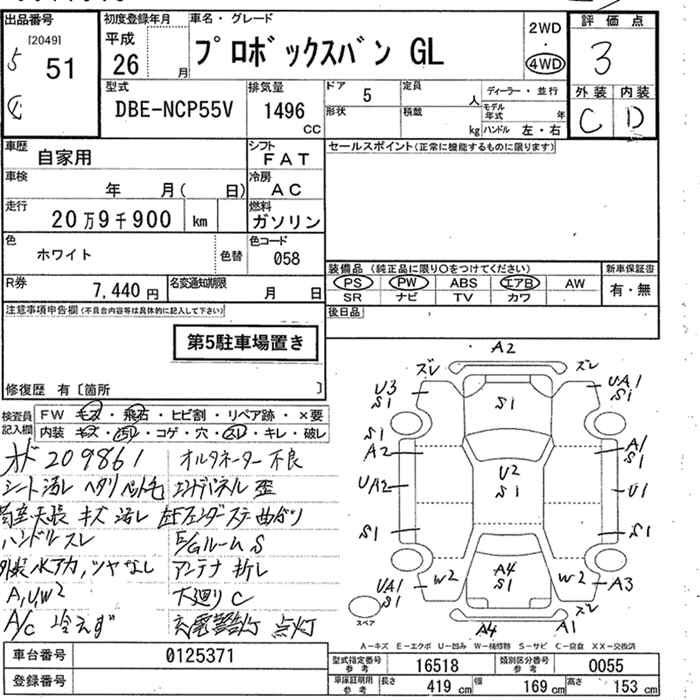 出品番号 初度登録年月 車名・グレード 評価点
[2049] 51
平成 26 月
プロボックスバン GL
2WD
4WD
3
外装 内装
C D
型式 DBE-NCP55V
排気量 1496 CC
ドア 5
定員 人
ディーラー・並行
形状
積載 kg
モデル年式 年
ハンドル 左・右
車歴 自家用
シフト FAT
セールスポイント(正常に機能するものに限ります)
車検 年 月( 日)
冷房 AC
走行 20万9千900 km
燃料 ガソリン
色 ホワイト 色替
色コード 058
装備品 (純正品に限り○をつけてください) 新車保証書
PS PW ABS エアB AW 有・無
SR ナビ TV カワ
R券 7,440円
名変通知期限 月 日
注意事項申告欄(不具合内容等は具体的に記入して下さい)
後日品
第5駐車場置き
修復歴 有〔箇所 〕
検査員記入欄
FW キズ・飛石・ヒビ割・リペア跡・×要
内装 キズ・汚レ・コゲ・穴・スレ・キレ・破レ
オド 209861 オルタネーター不良
シート汚レ ヘタリ ペット毛 エンドパネル歪
天張キズ汚レ 左Fフェンダステー曲がり
ハンドルスレ E/GルームS
外装水アカ,ツヤなし アンテナ折レ
A,U,W2 下廻りC
A/C冷えず 充電警告灯 点灯
A2
ズレ ズレ
U3 S1 S1 UA1 S1
S1
A2 A1 S1
UA2 U2 S1 U1
S1 S1
W2 A4 S1 W2 A3
UA1 S1
スペア
A4 A1 ズレ
A-キズ E-エクボ U-凹み W-補修跡 S-サビ C-腐食 XX-交換済
車台番号 0125371
登録番号
型式指定番号参考 16518 類別区分番号参考 0055
車庫証明用参考 長さ 419 cm 幅 169 cm 高さ 153 cm